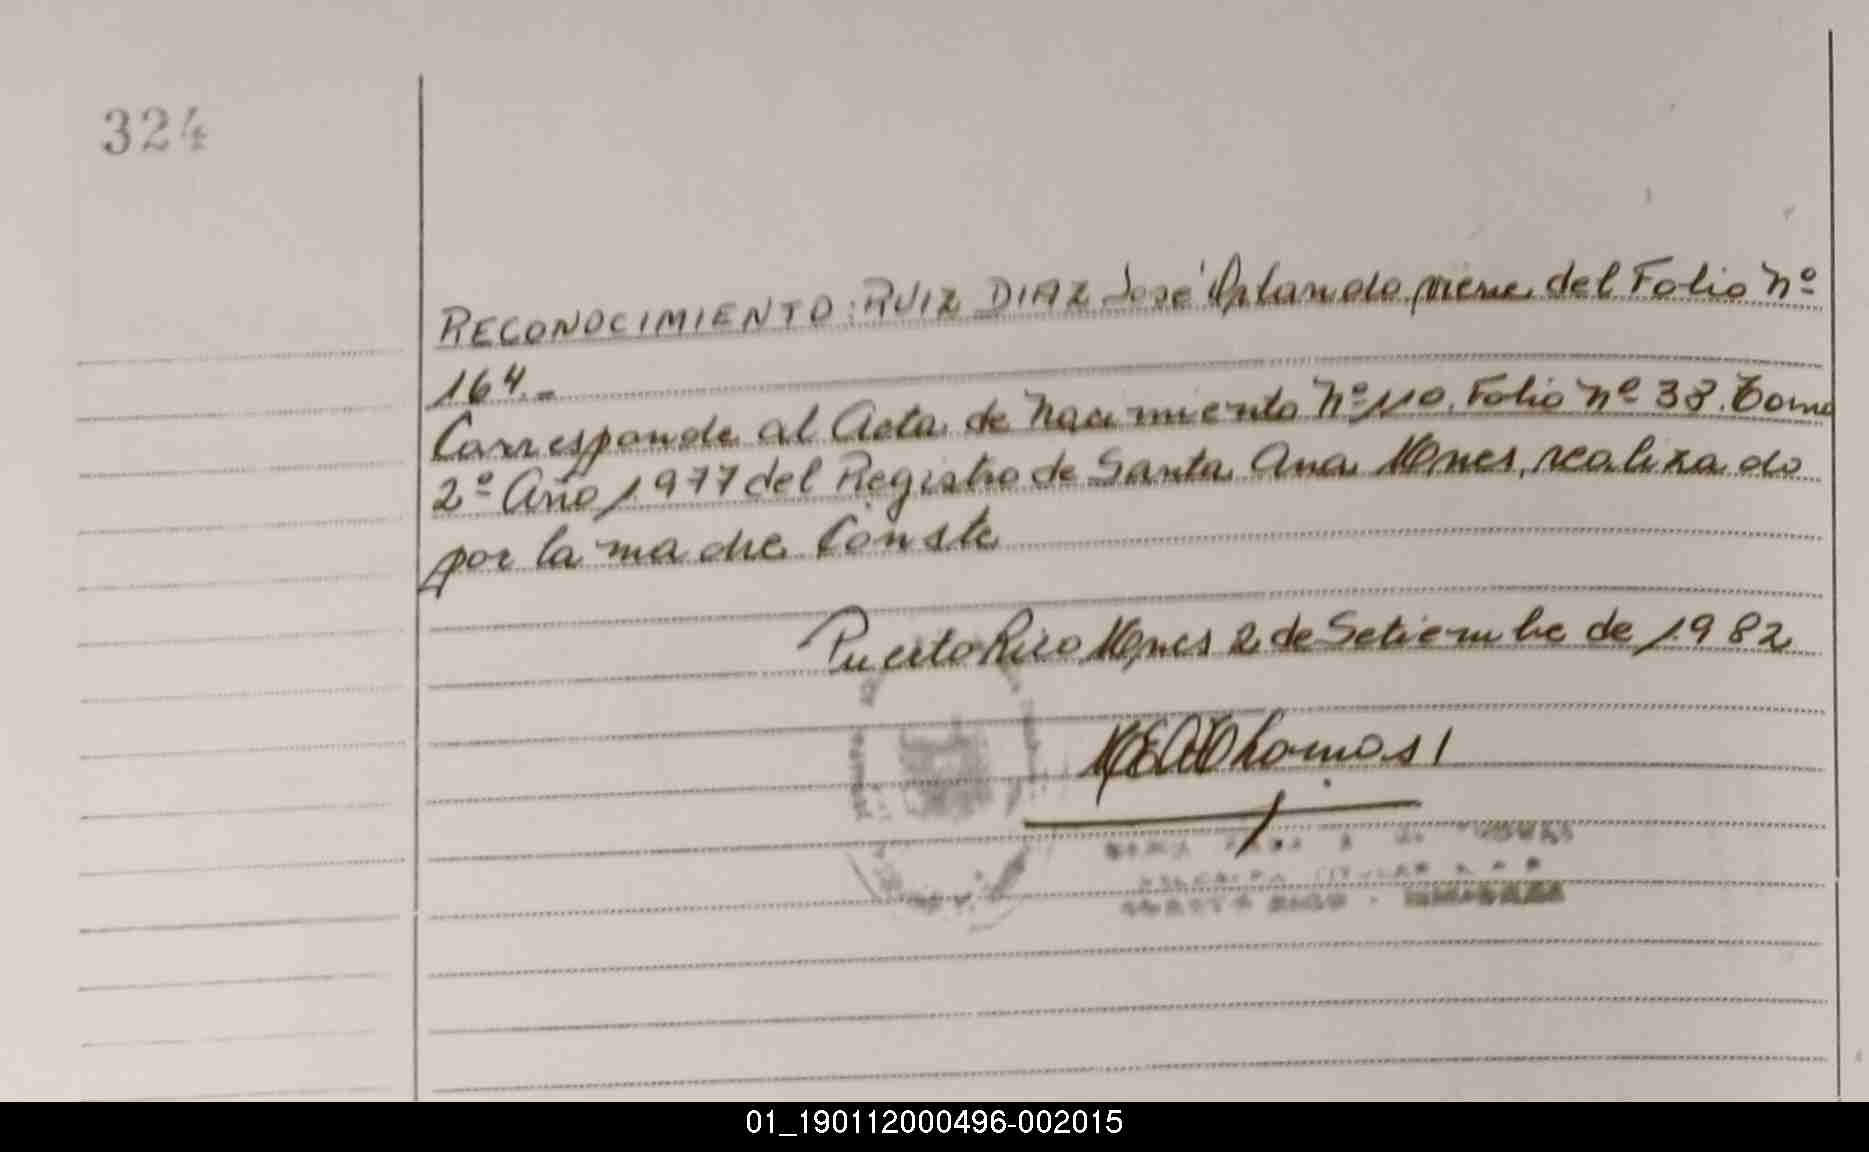 324
RECONOCIMIENTO: RUIZ DIAZ José Orlando, viene del Folio Nº
164.-
Corresponde al Acta de Nacimiento Nº 110. Folio Nº 38. Tomo
2º Año 1977 del Registro de Santa Ana Mnes, realizado
por la madre Conste
Puerto Rico Mnes 2 de Setiembre de 1982
PUERTO RICO - MISIONES
01_190112000496-002015